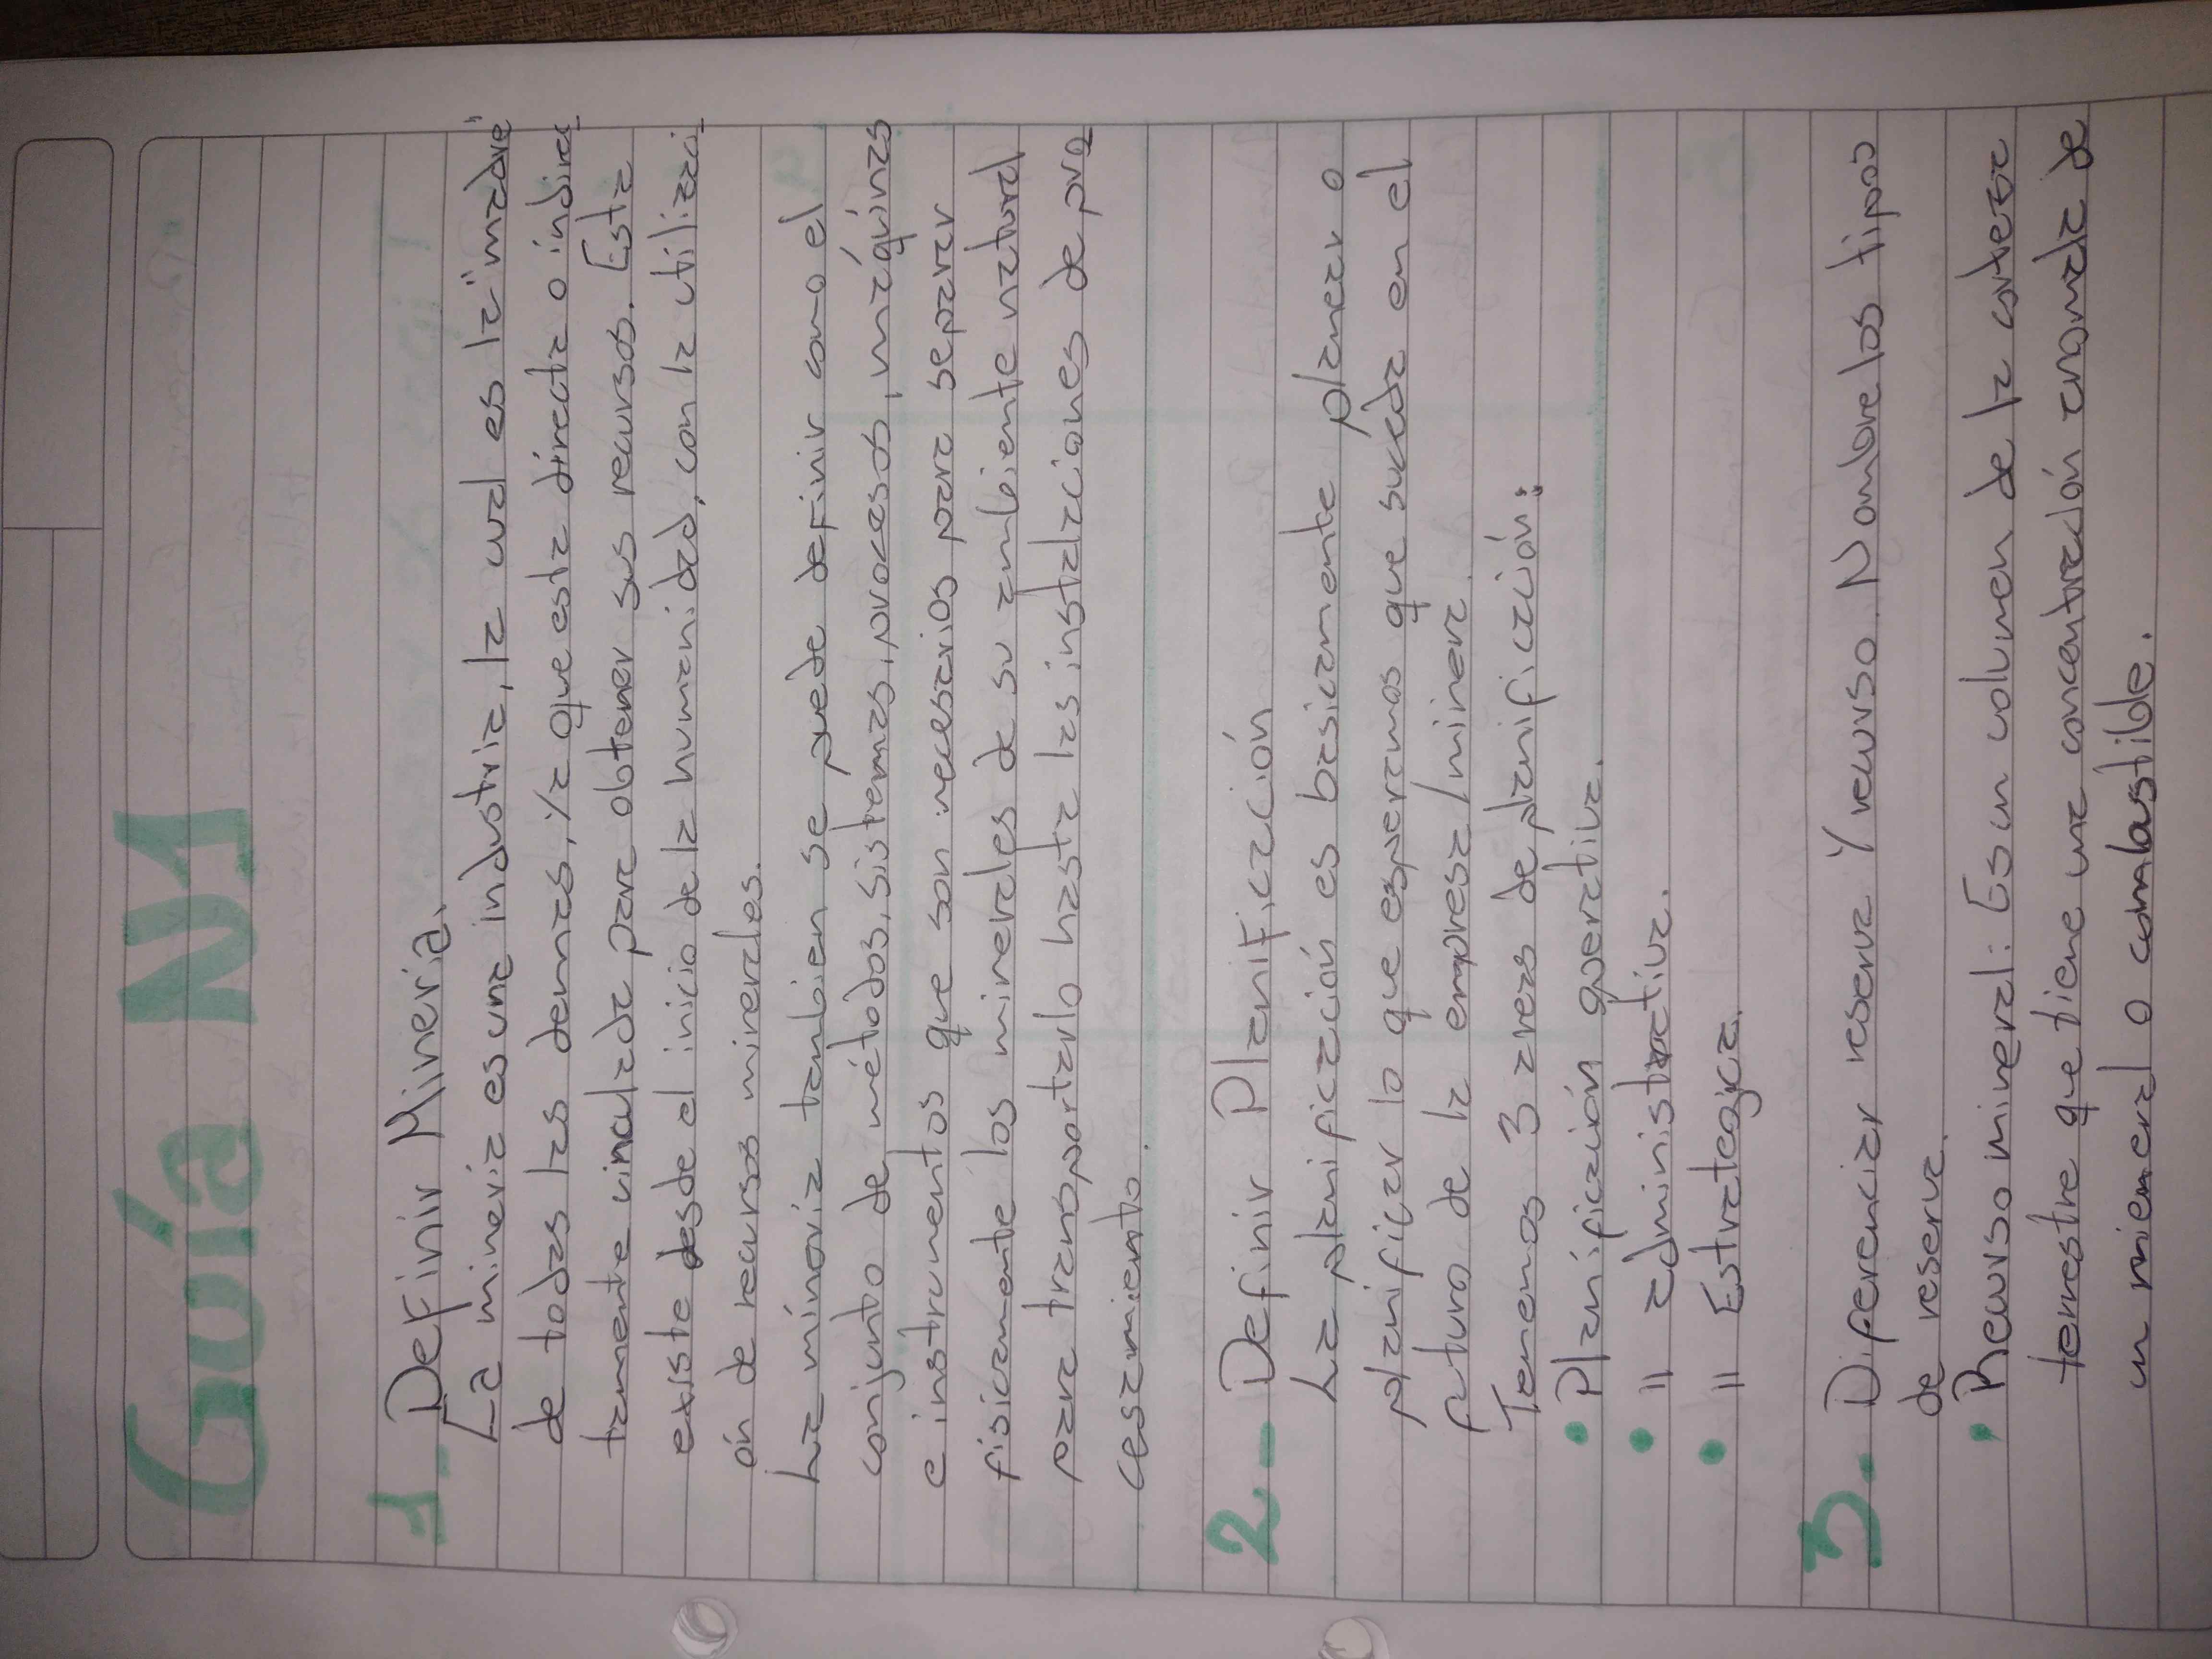 Guía N1
1- Definir Mineria.
La mineria es una industria, la cual es la "madre"
de todas las demas, ya que esta directa o indirec
tamente vinculada para obtener sus recursos. Esta
existe desde el inicio de la humanidad, con la utilizaci
ón de recursos minerales.
La mineria tambien se puede definir como el
conjunto de métodos, sistemas, procesos, máquinas
e instrumentos que son necesarios para separar
fisicamente los minerales de su ambiente natural
para transportarlo hasta las instalaciones de pro
cesamiento.
2- Definir Planificación
La planificación es basicamente planear o
planificar lo que esperamos que suceda en el
futuro de la empresa/minera.
Tenemos 3 areas de planificación:
• Planificación operativa.
• " administrativa.
• " Estrategica.
3. Diferenciar reserva y recurso. Nombre los tipos
de reserva.
• Recurso mineral: Es un volumen de la corteza
terrestre que tiene una concentración anomala de
un mieneral o combustible.